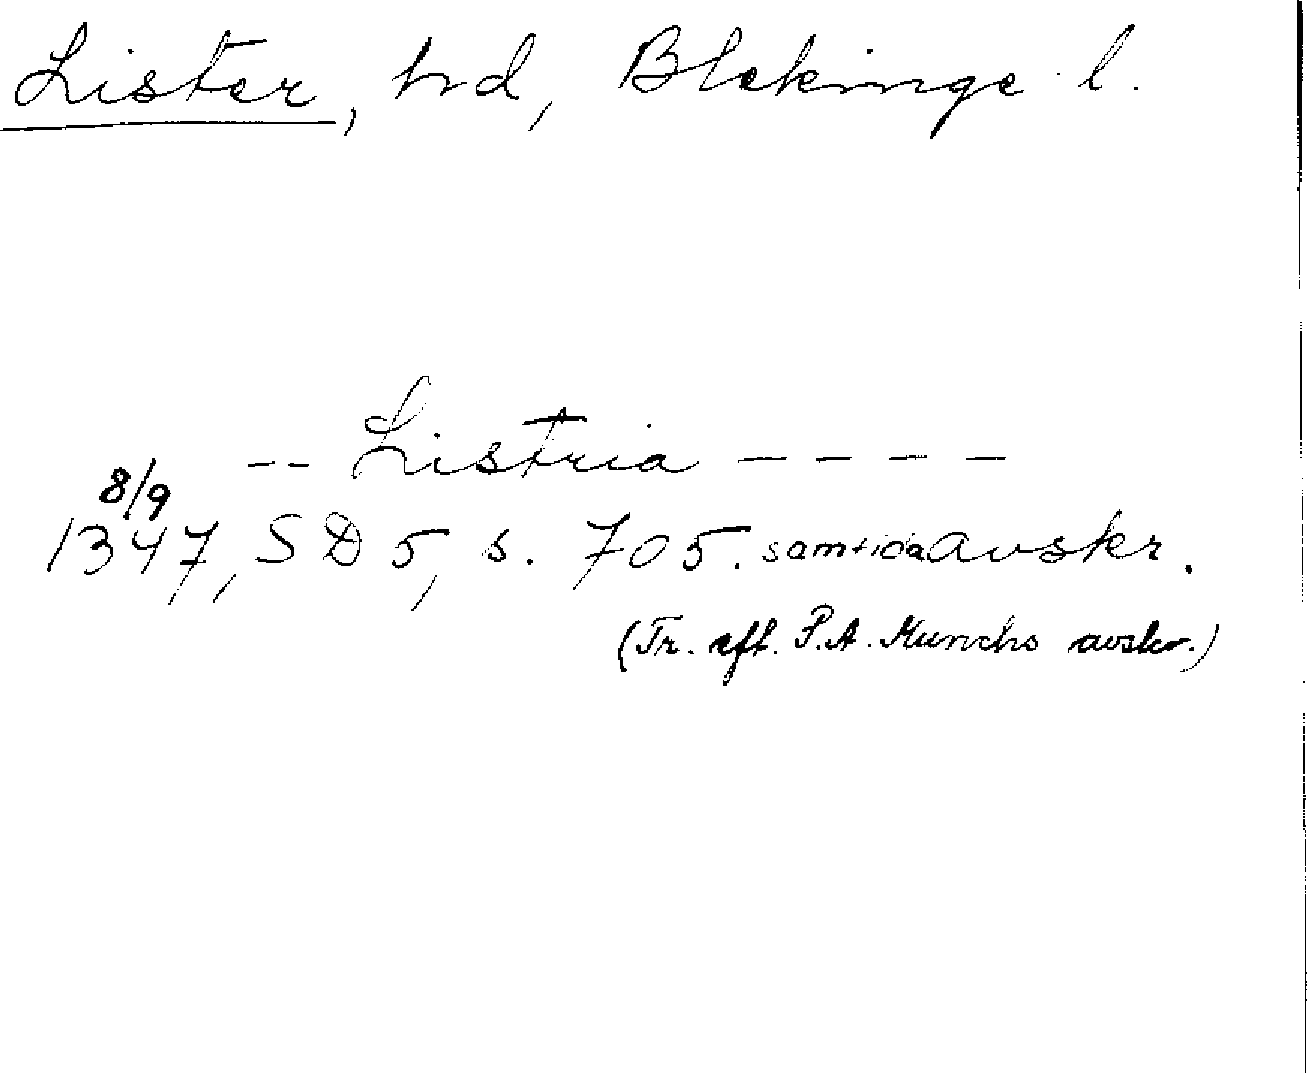 Lister, hd, Blekinge l.
-- Listria ----
8/9
1347, SD 5, s. 705. samtida avskr.
(Tr. eft. P.A. Munchs avskr.)